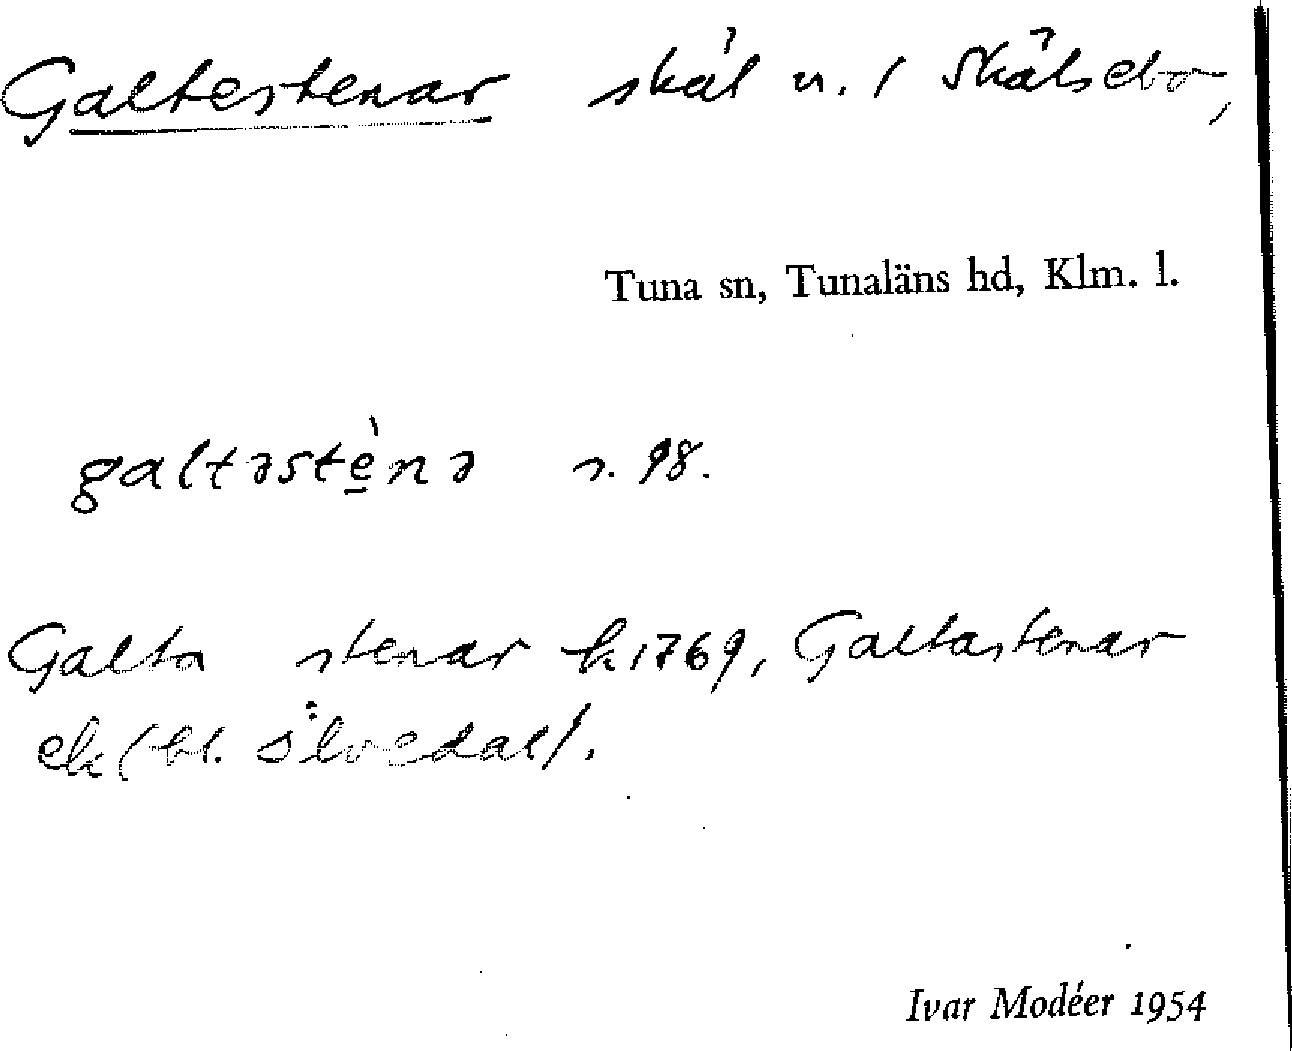 Galtestenar skäl n. / Skälsebo,
Tuna sn, Tunaläns hd, Klm. l.
galtəstènə s. 98.
Galta stenar k. 1769, Galtastenar
ek (bl. Silvedal).
Ivar Modéer 1954